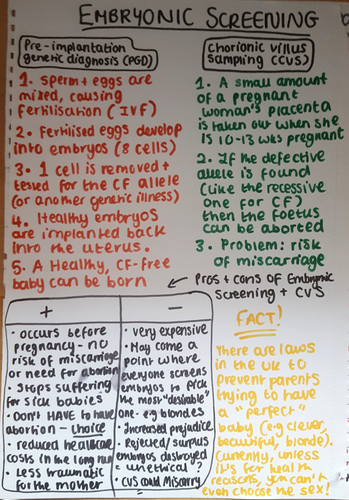 EMBRYONIC SCREENING
Pre-implantation
genetic diagnosis (PGD)
1. Sperm + eggs are
mixed, causing
fertilisation (IVF)
2. Fertilised eggs develop
into embryos (8 cells)
3. 1 cell is removed +
tested for the CF allele
(or another genetic illness)
4. Healthy embryos
are implanted back
into the uterus.
5. A Healthy, CF-free
baby can be born
Chorionic villus
sampling (CVS)
1. A small amount
of a pregnant
woman's placenta
is taken out when she
is 10-13 wks pregnant
2. If the defective
allele is found
(like the recessive
one for CF)
then the foetus
can be aborted
3. Problem: risk
of miscarriage
Pros + cons of Embryonic
Screening + CVS
+
• occurs before
pregnancy - no
risk of miscarriage
or need for abortion
• Stops suffering
for sick babies
• Don't HAVE to have
abortion - choice
• reduced healthcare
costs in the long run
• Less traumatic
for the mother
-
• very expensive
• May come a
point where
everyone screens
embryos to pick
the most "desirable"
one - e.g blondes
• Increased prejudice
• Rejected/surpus
embryos destroyed
= unethical?
• CVS could Miscarry
FACT!
There are laws
in the UK to
prevent parents
trying to have
a "perfect"
baby (e.g clever,
beautiful, blonde).
Currently, unless
it's for health
reasons, you can't
even choose the sex!